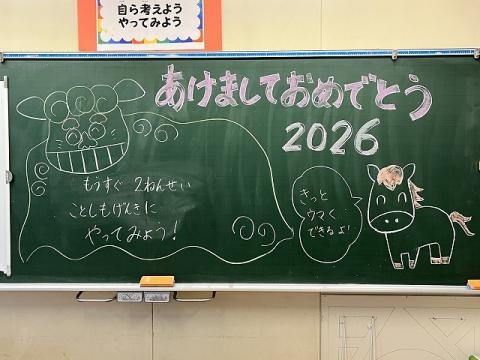 自ら考えよう
やってみよう
あけましておめでとう
2026
もうすぐ 2ねんせい
ことしもげんきに
やってみよう!
きっと
ウマく
できるよ!